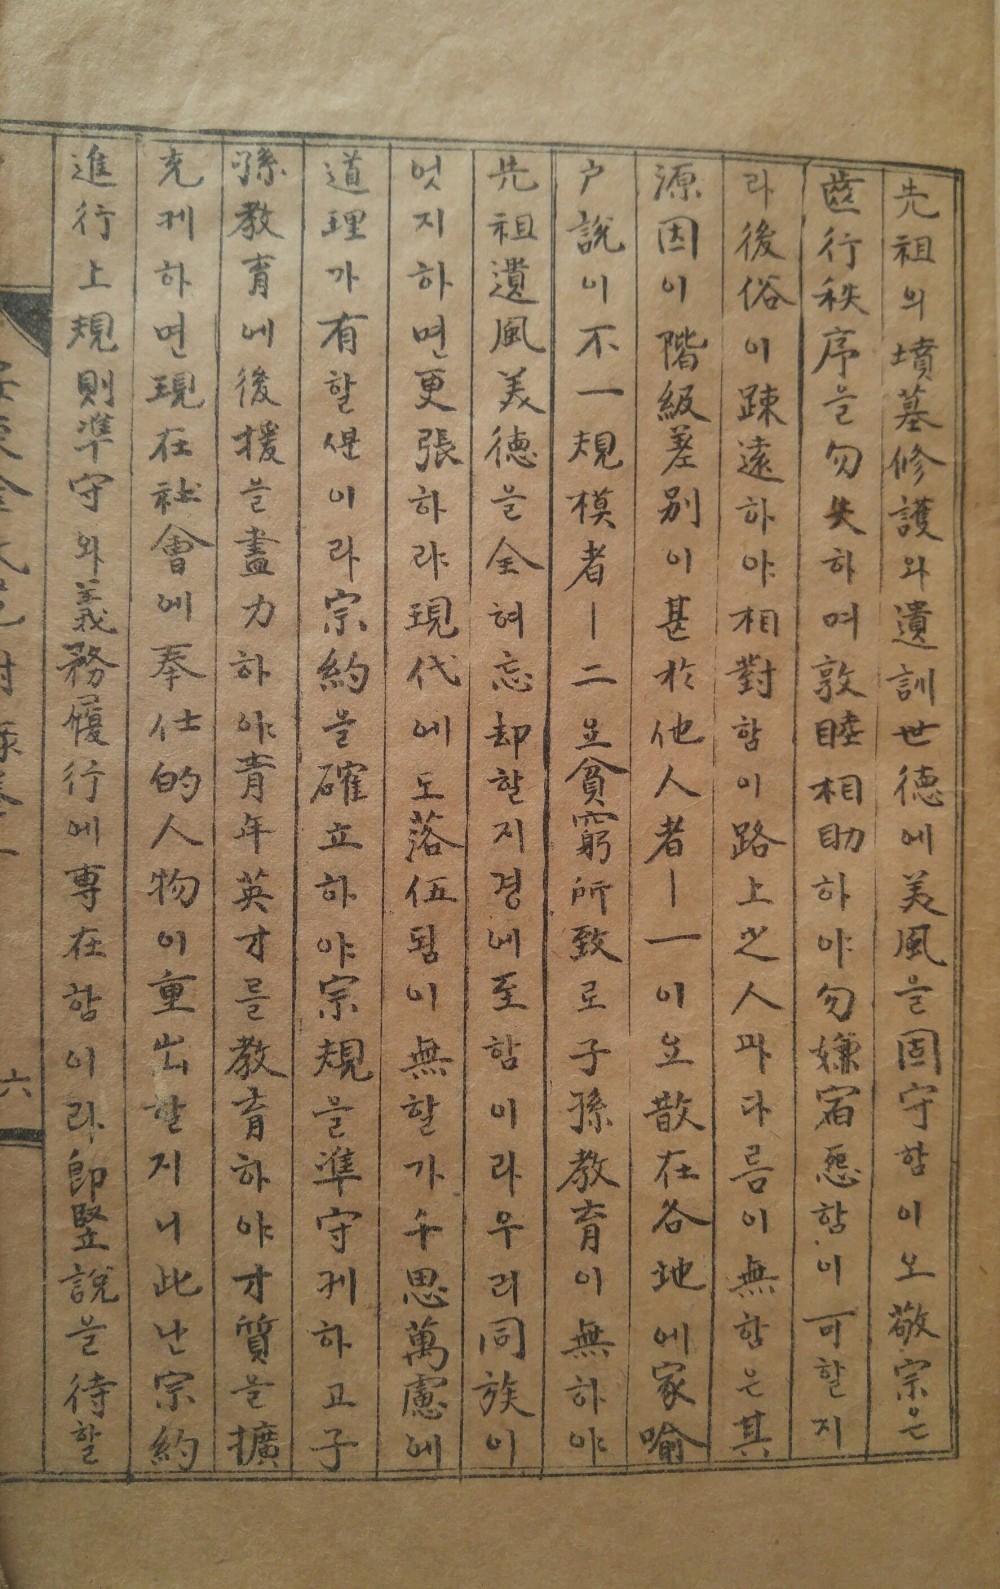 先祖의墳墓修護와遺訓世德에美風을固守함이오敬宗은
齒行秩序을勿失하며敦睦相助하야勿嫌宿怨함이可할지
라後俗이疎遠하야相對함이路上之人과다름이無함은其
源因이階級差別이甚於他人者ㅣ一이오散在各地에家喻
户說이不一規模者ㅣ二요貧窮所致로子孫教育이無하야
先祖遺風美德을全혀忘却할지경에至함이라우리同族이
엇지하면更張하랴現代에도落伍됨이無할가千思萬慮에
道理가有할são이라宗約을確立하야宗規을準守케하고子
孫教育에後援을盡力하야靑年英才를教育하야才質을擴
充케하면現在社會에奉仕的人物이重出할지니此난宗約
進行上規則準守와義務履行에專在함이라卽竪說을待할
六